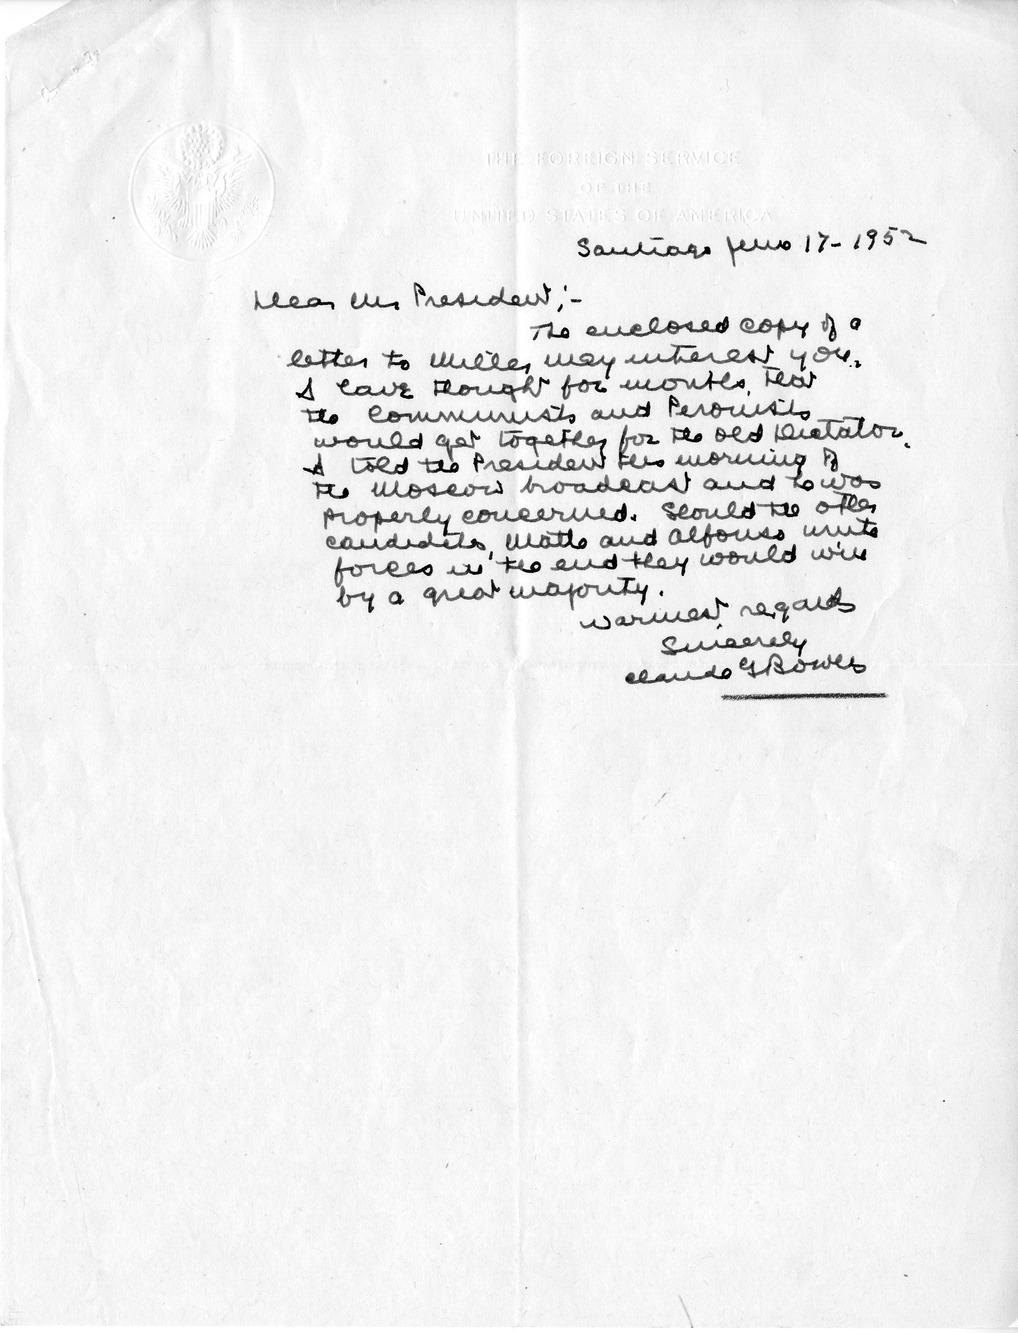 THE FOREIGN SERVICE
OF THE
UNITED STATES OF AMERICA
Santiago June 17-1952
Dear Mr President;-
The enclosed copy of a
letter to Miller may interest you.
I have thought for months, that
the Communists and Peronists
would get together for the old Dictator.
I told the President this morning of
the Moscow broadcast and he was
properly concerned. Should the other
candidates, Matte and Alfonso unite
forces in the end they would win
by a great majority.
Warmest regards
Sincerely
Claude G Bowers